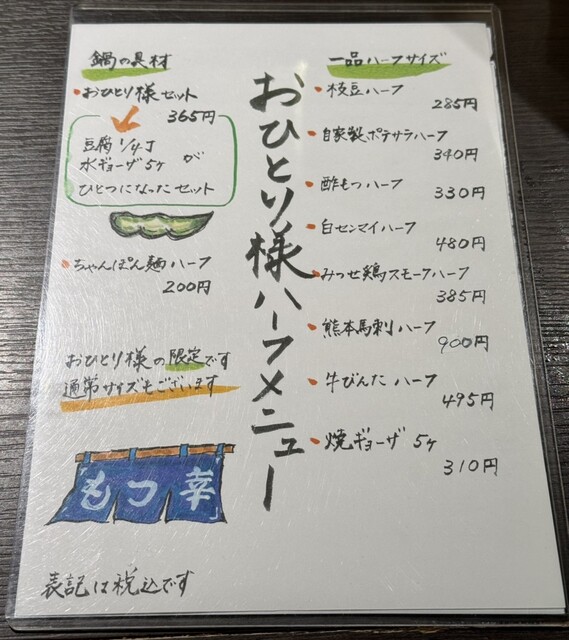 おひとり様ハーフメニュー
鍋の具材
おひとり様セット
365円
豆腐 1/4丁
水ギョーザ 5ヶ が
ひとつになったセット
ちゃんぽん麺ハーフ
200円
おひとり様の限定です
通常サイズもございます
もつ幸
表記は税込です
一品ハーフサイズ
枝豆ハーフ
285円
自家製ポテサラハーフ
340円
酢もつハーフ
330円
白センマイハーフ
480円
みつせ鶏スモークハーフ
385円
熊本馬刺ハーフ
900円
牛びんた ハーフ
495円
焼ギョーザ 5ヶ
310円